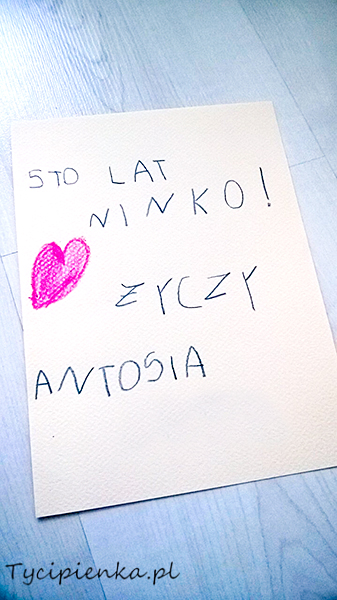 STO LAT
NINKO!
ŻYCZY
ANTOSIA
Tycipienka.pl